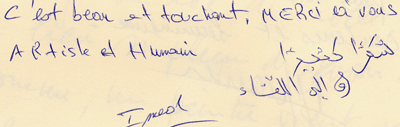 C'est beau et touchant, MERCi à vous
ARtiste et Humain
شكرًا كثيرًا
و إلى اللقاء
Imed